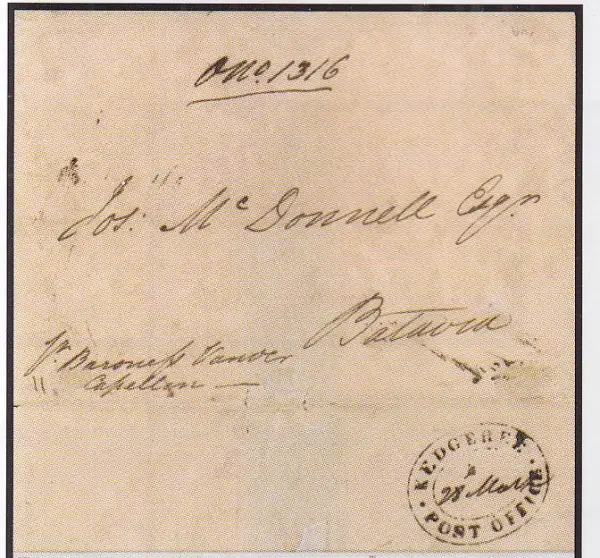 Ono. 1316
Jos: Mc Donnell Esqr.
Batavia
pr. Baroness Vander
" Capellen —
KEDGEREE
28 March
POST OFFICE